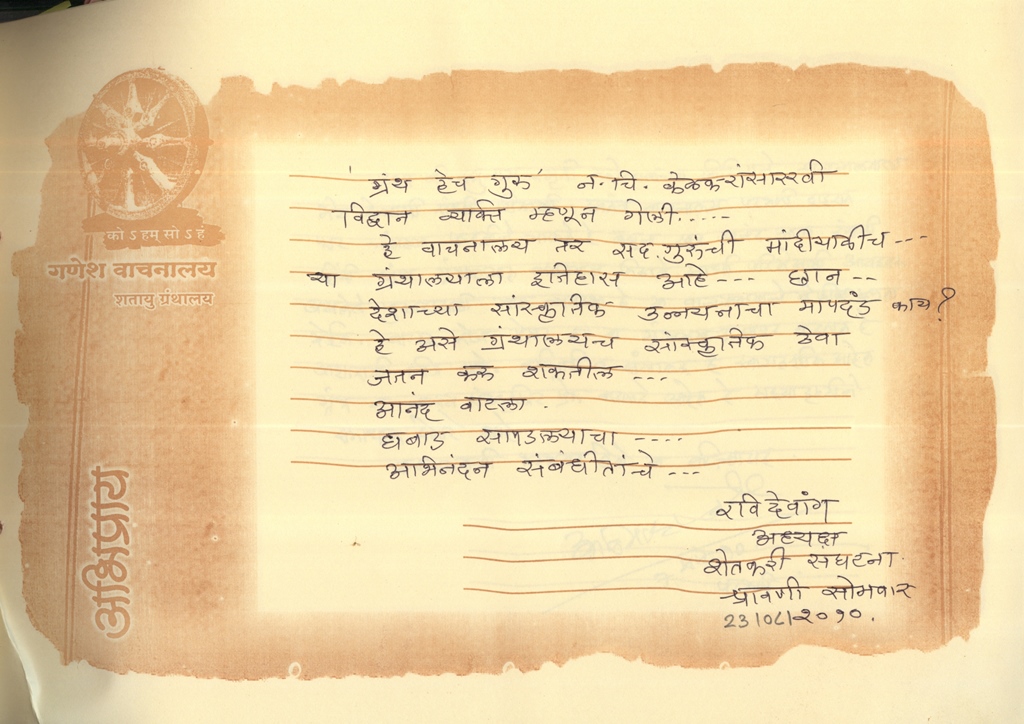 को ऽ हम् सो ऽ हं
गणेश वाचनालय
शतायु ग्रंथालय
अभिप्राय
'ग्रंथ हेच गुरू' न. चि. केळकरांसारखी
विद्वान व्यक्ति म्हणून गेली.....
हे वाचनालय तर सद्.गुरूंची मांदीयाळीच ---
या ग्रंथालयाला इतिहास आहे --- छान --
देशाच्या सांस्कृतिक उन्नयनाचा मापदंड काय?
हे असे ग्रंथालयच सांस्कृतिक ठेवा
जतन करू शकतील ---
आनंद वाटला.
घबाड सापडल्याचा ----
अभिनंदन संबंधीतांचे ---
रवि देवांग
अध्यक्ष
शेतकरी संघटना.
श्रावणी सोमवार
23।०८।२०१०.